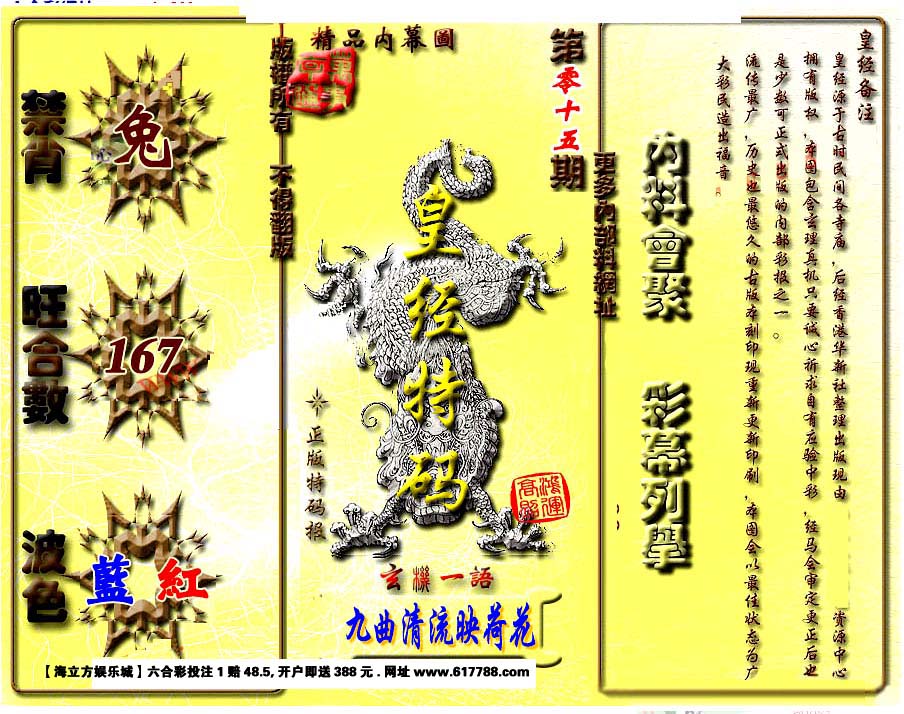 精品内幕圖
版權所有 不得翻版
第零十五期
更多內部料網址
禁肖
兔
旺合數
167
波色
藍 紅
皇经特码
正版特码报
鴻運高照
玄機一語
九曲清流映荷花
内料會聚 彩幕列舉
皇经备注
皇经源于古时民间各寺庙，后经香港华新社整理出版现由 资源中心
拥有版权，本图包含玄理真机只要诚心祈求自有应验中彩，经马会审定更正后也
是少数可正式出版的内部彩报之一。
流传最广，历史也最悠久的古版本刻印现重新更新印刷，本图会以最佳状态为广
大彩民造出福音
【海立方娱乐城】六合彩投注1赔48.5,开户即送388元.网址www.617788.com